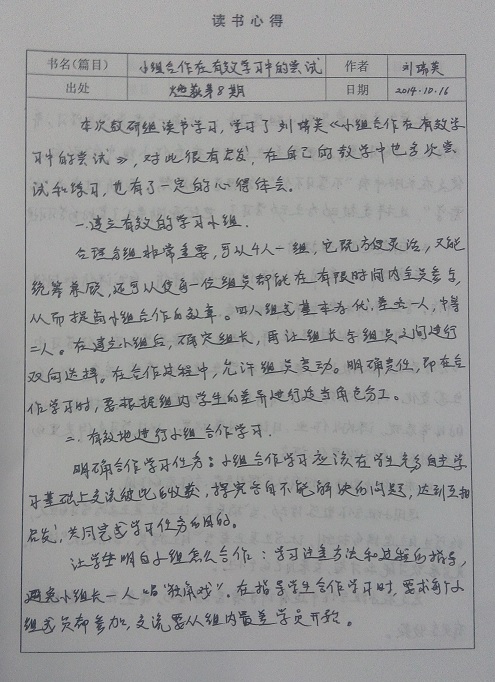 读书心得
书名(篇目) 小组合作在有效学习中的尝试 作者 刘瑞英
出处 第8期 日期 2014.10.16
本次教研组读书学习,学习了刘瑞英《小组合作在有效学
习中的尝试》,对此很有启发,在自己的教学中也多次尝
试和练习,也有了一定的心得体会。
一.建立有效的学习小组.
合理分组非常重要,可以4人一组,它既方便灵活,又能
统筹兼顾,还可以使每一位组员都能在有限时间内主动参与,
从而提高小组合作的效率。四人组为优,差各一人,中等
二人。在建立小组后,确定组长,再让组长与组员之间进行
双向选择。在合作过程中,允许组员变动。明确责任,即在合
作学习时,要根据组内学生的差异进行适当角色分工。
二.有效地进行小组合作学习.
明确合作学习任务:小组合作学习应该在学生充分自主学
习基础上交流彼此的收获,探究各自不能解决的问题,达到互相
启发,共同完成学习任务的目的。
让学生明白小组怎么合作:学习注重方法和过程的指导,
避免小组长一人唱“独角戏”。在指导学生合作学习时,要求每个小
组成员都参加,交流要从组内最差学员开始。